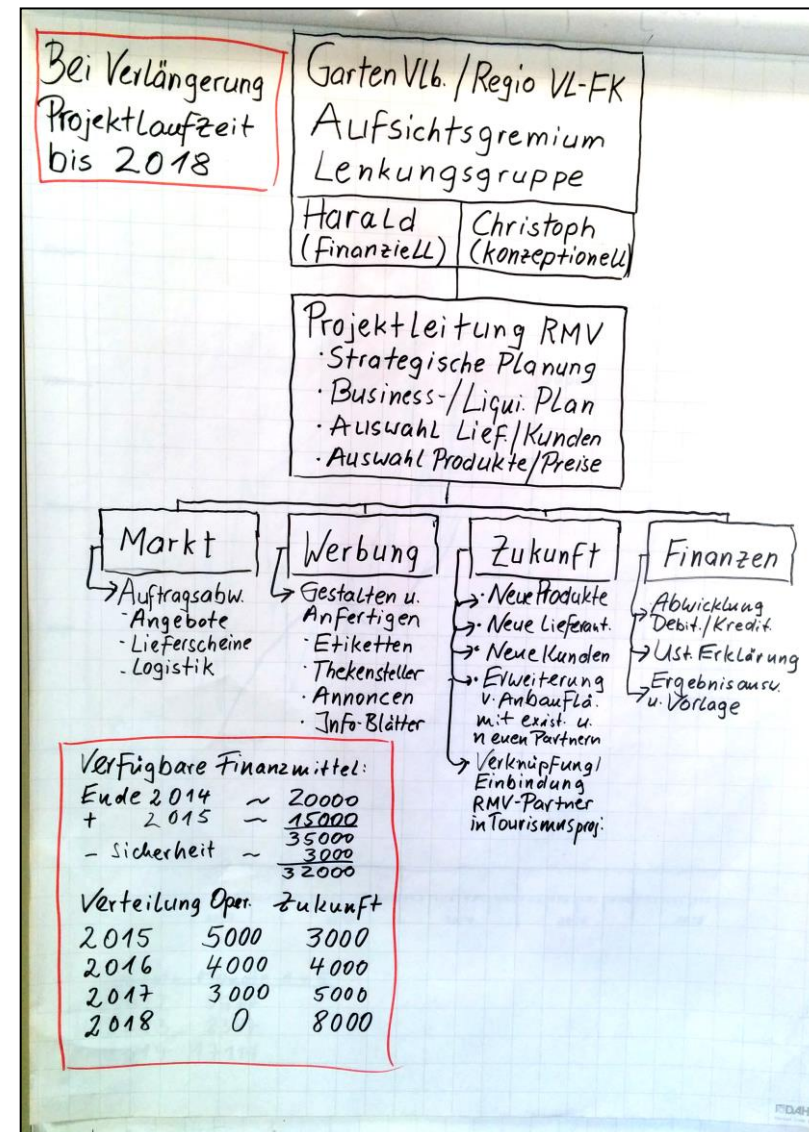 Bei Verlängerung
Projektlaufzeit
bis 2018
Garten Vlb. / Regio VL-FK
Aufsichtsgremium
Lenkungsgruppe
Harald
(finanziell)
Christoph
(konzeptionell)
Projektleitung RMV
· Strategische Planung
· Business-/Liqui. Plan
· Auswahl Lief./Kunden
· Auswahl Produkte/Preise
Markt
Auftragsabw.
- Angebote
- Lieferscheine
- Logistik
Werbung
Gestalten u.
Anfertigen
· Etiketten
· Thekensteller
· Annoncen
· Info-Blätter
Zukunft
· Neue Produkte
· Neue Lieferant.
· Neue Kunden
· Erweiterung
v. Anbauflä.
mit exist. u.
neuen Partnern
Verknüpfung/
Einbindung
RMV-Partner
in Tourismusproj.
Finanzen
Abwicklung
Debit./Kredit.
Ust. Erklärung
Ergebnisausw.
u. Vorlage
Verfügbare Finanzmittel:
Ende 2014 ~ 20000
+ 2015 ~ 15000
35000
- Sicherheit ~ 3000
32000
Verteilung Oper. Zukunft
2015 5000 3000
2016 4000 4000
2017 3000 5000
2018 0 8000